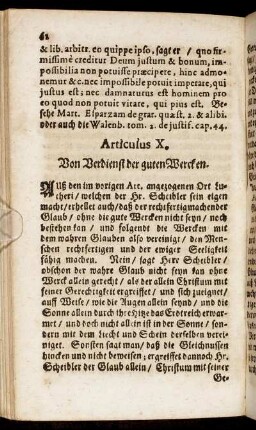 62
& lib. arbitr. eo quippe ipso, sagt er / quo fir-
missimè creditur Deum justum & bonum, im-
possibilia non potuisse præcipere, hinc admo-
nemur &c. nec impossibile potuit imperare, qui
justus est; nec damnaturus est hominem pro
eo quod non potuit vitare, qui pius est. Be-
sehe Mart. Esparzam de grat. quæst. 2. & alibi.
oder auch die Walenb. tom. 2. de justif. cap. 44.
Articulus X.
Von Verdienst der guten Wercken.
Auß den im vorigen Art. angezogenen Ort Lu-
theri / welchen der Hr. Scheibler sein eigen
macht / erhellet auch / daß der rechtfertigmachende
Glaub / ohne die gute Wercken nicht seyn / noch
bestehen kan / und folgends die Wercken mit
dem wahren Glauben also vereinigt / den Men-
schen rechtfertigen und der ewiger Seeligkeit
fähig machen. Nein / sagt Herr Scheibler /
obschon der wahre Glaub nicht seyn kan ohne
Werck allein gerecht / als der allein Christum mit
seiner Gerechtigkeit ergreiffet / und sich zueignet /
auff Weise / wie die Augen allein seynd / und die
Sonne allein durch ihre Hitze das Erdreich erwär-
met / und doch nicht allein ist in der Sonne / son-
dern mit dem Liecht und Schein derselben verei-
niget. Sonsten sagt man / daß die Gleichnussen
hincken und nicht beweisen; ergreiffet dannoch Hr.
Scheibler der Glaub allein / Christum mit seiner
Ge-